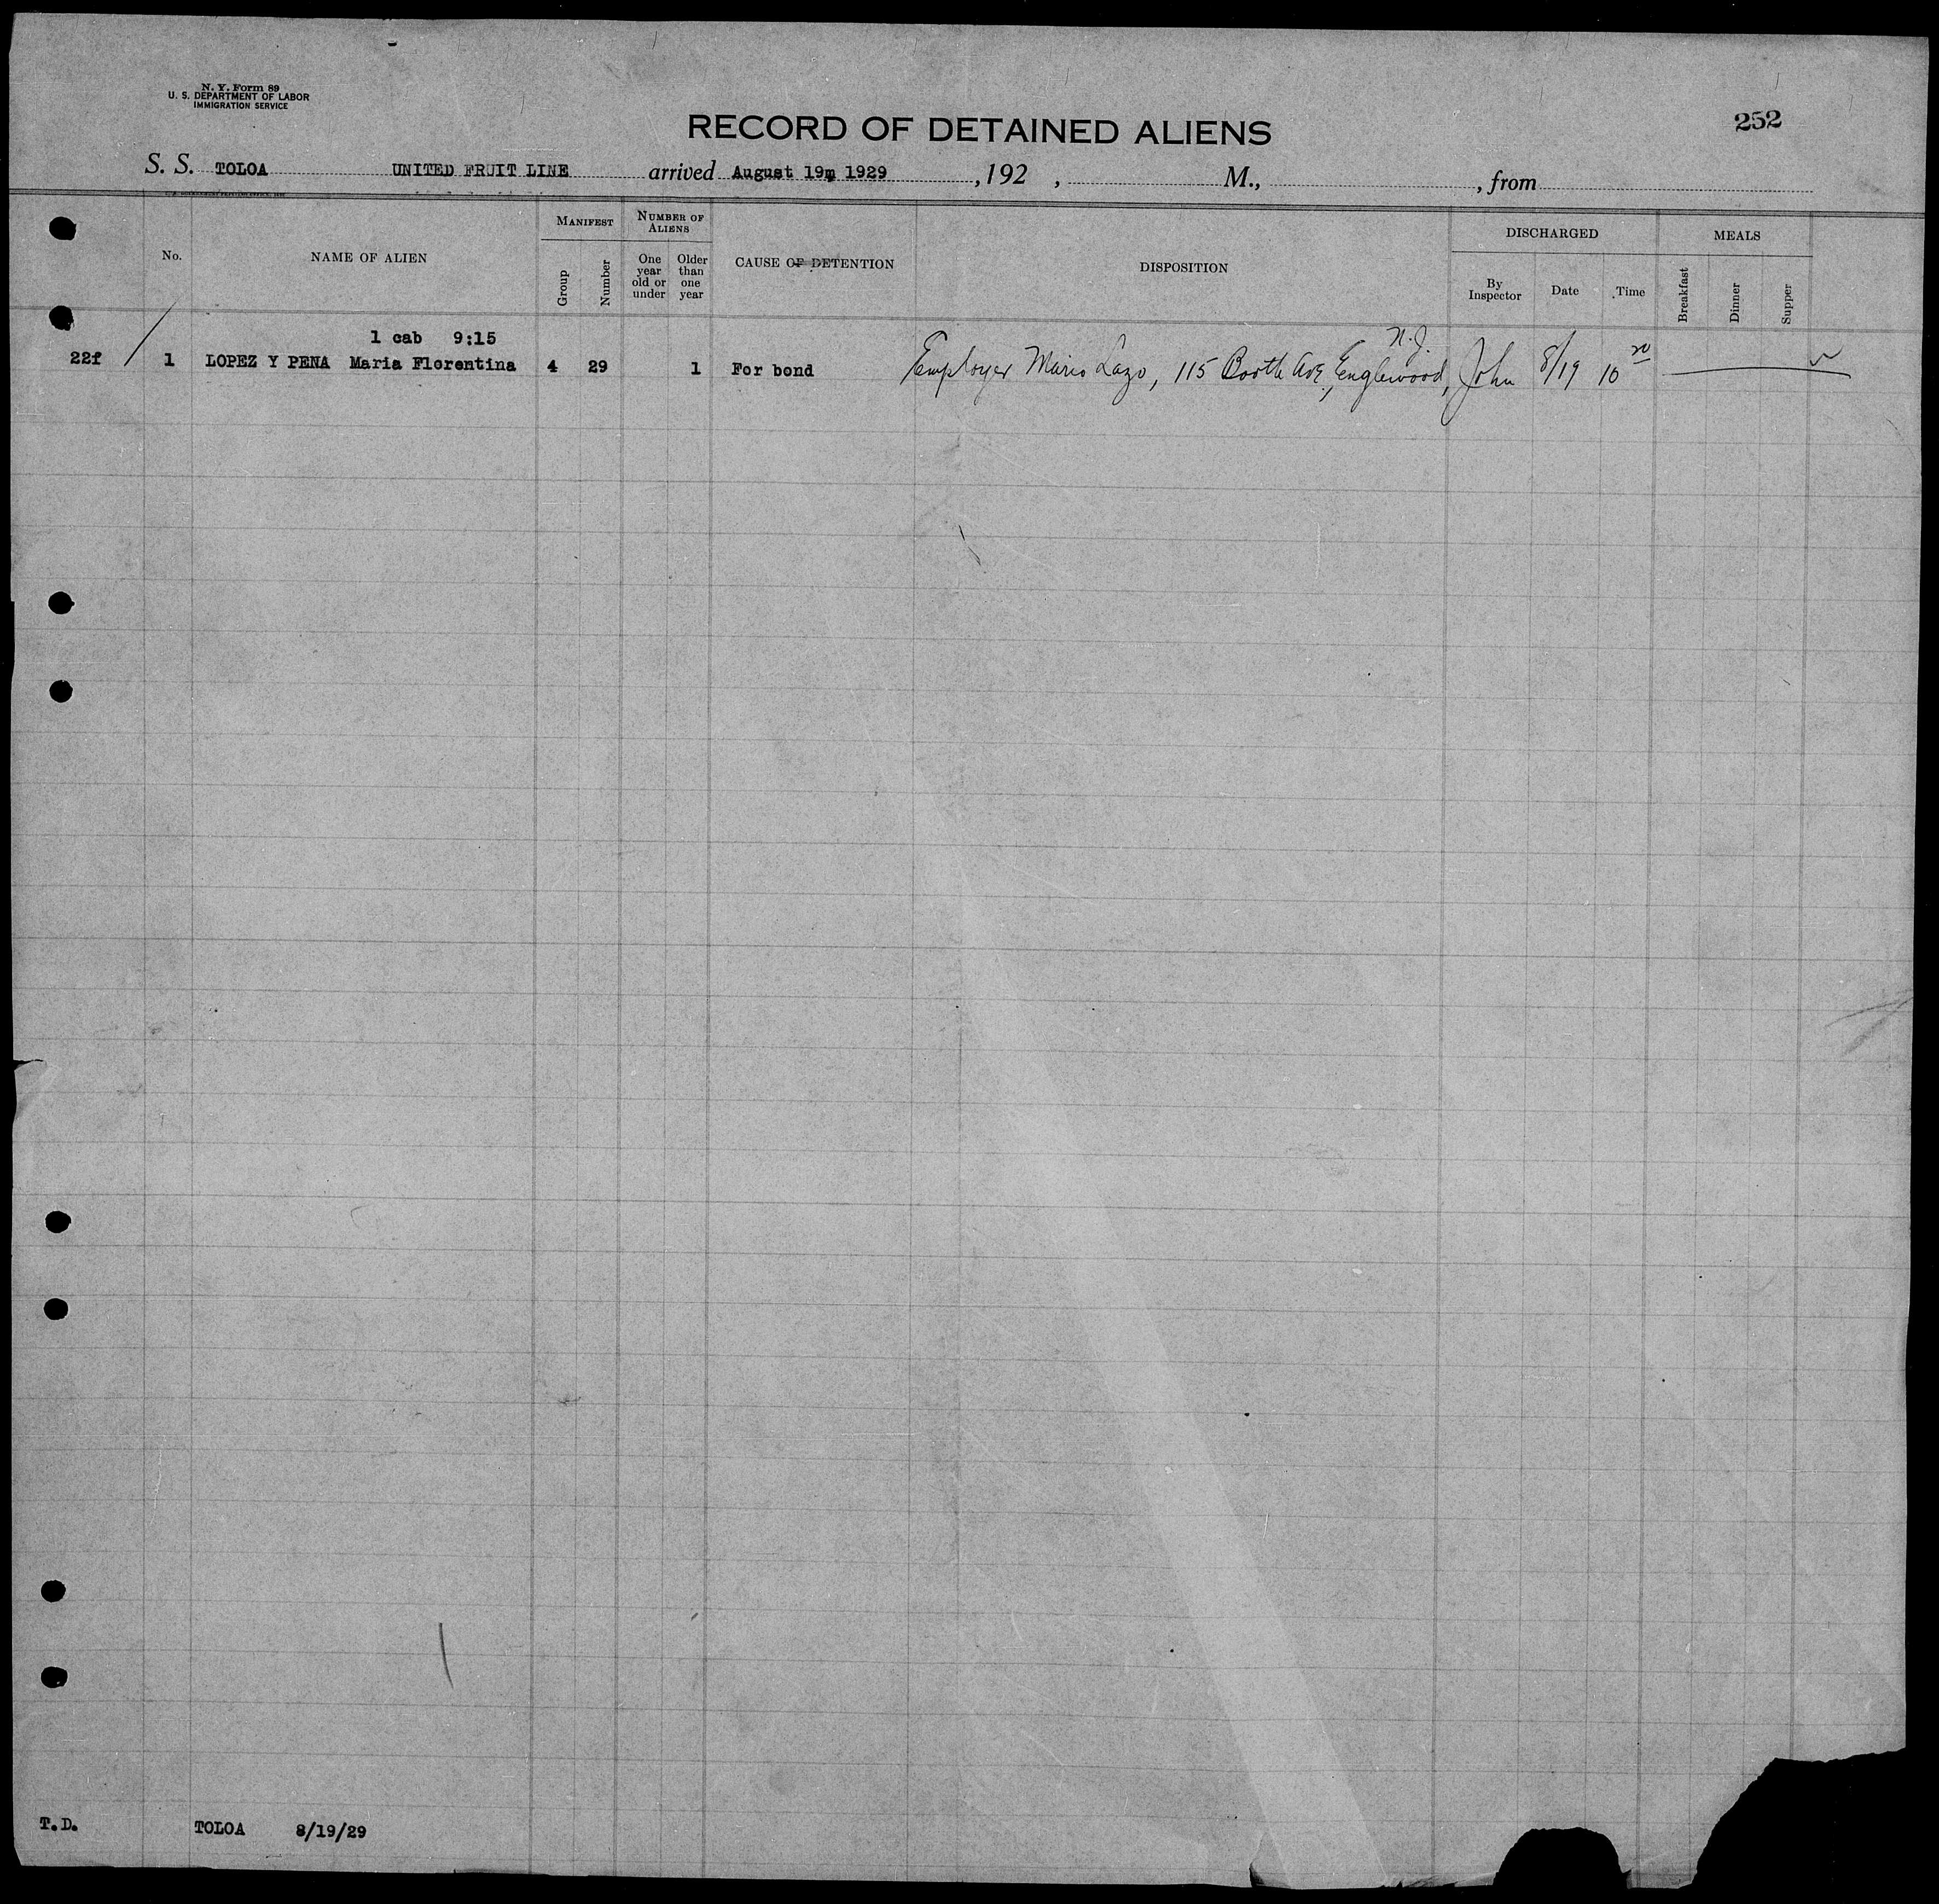 N. Y. Form 89
U. S. DEPARTMENT OF LABOR
IMMIGRATION SERVICE
252
RECORD OF DETAINED ALIENS
S. S. TOLOA UNITED FRUIT LINE arrived August 19m 1929 , 192 , M., , from
No. NAME OF ALIEN MANIFEST Group Number NUMBER OF ALIENS One year old or under Older than one year CAUSE OF DETENTION DISPOSITION DISCHARGED By Inspector Date Time MEALS Breakfast Dinner Supper
1 cab 9:15 N.J.
22f / 1 LOPEZ Y PENA Maria Florentina 4 29 1 For bond Employer Mario Lazo, 115 Booth Ave, Englewood, John 8/19 10 20
T.D. TOLOA 8/19/29